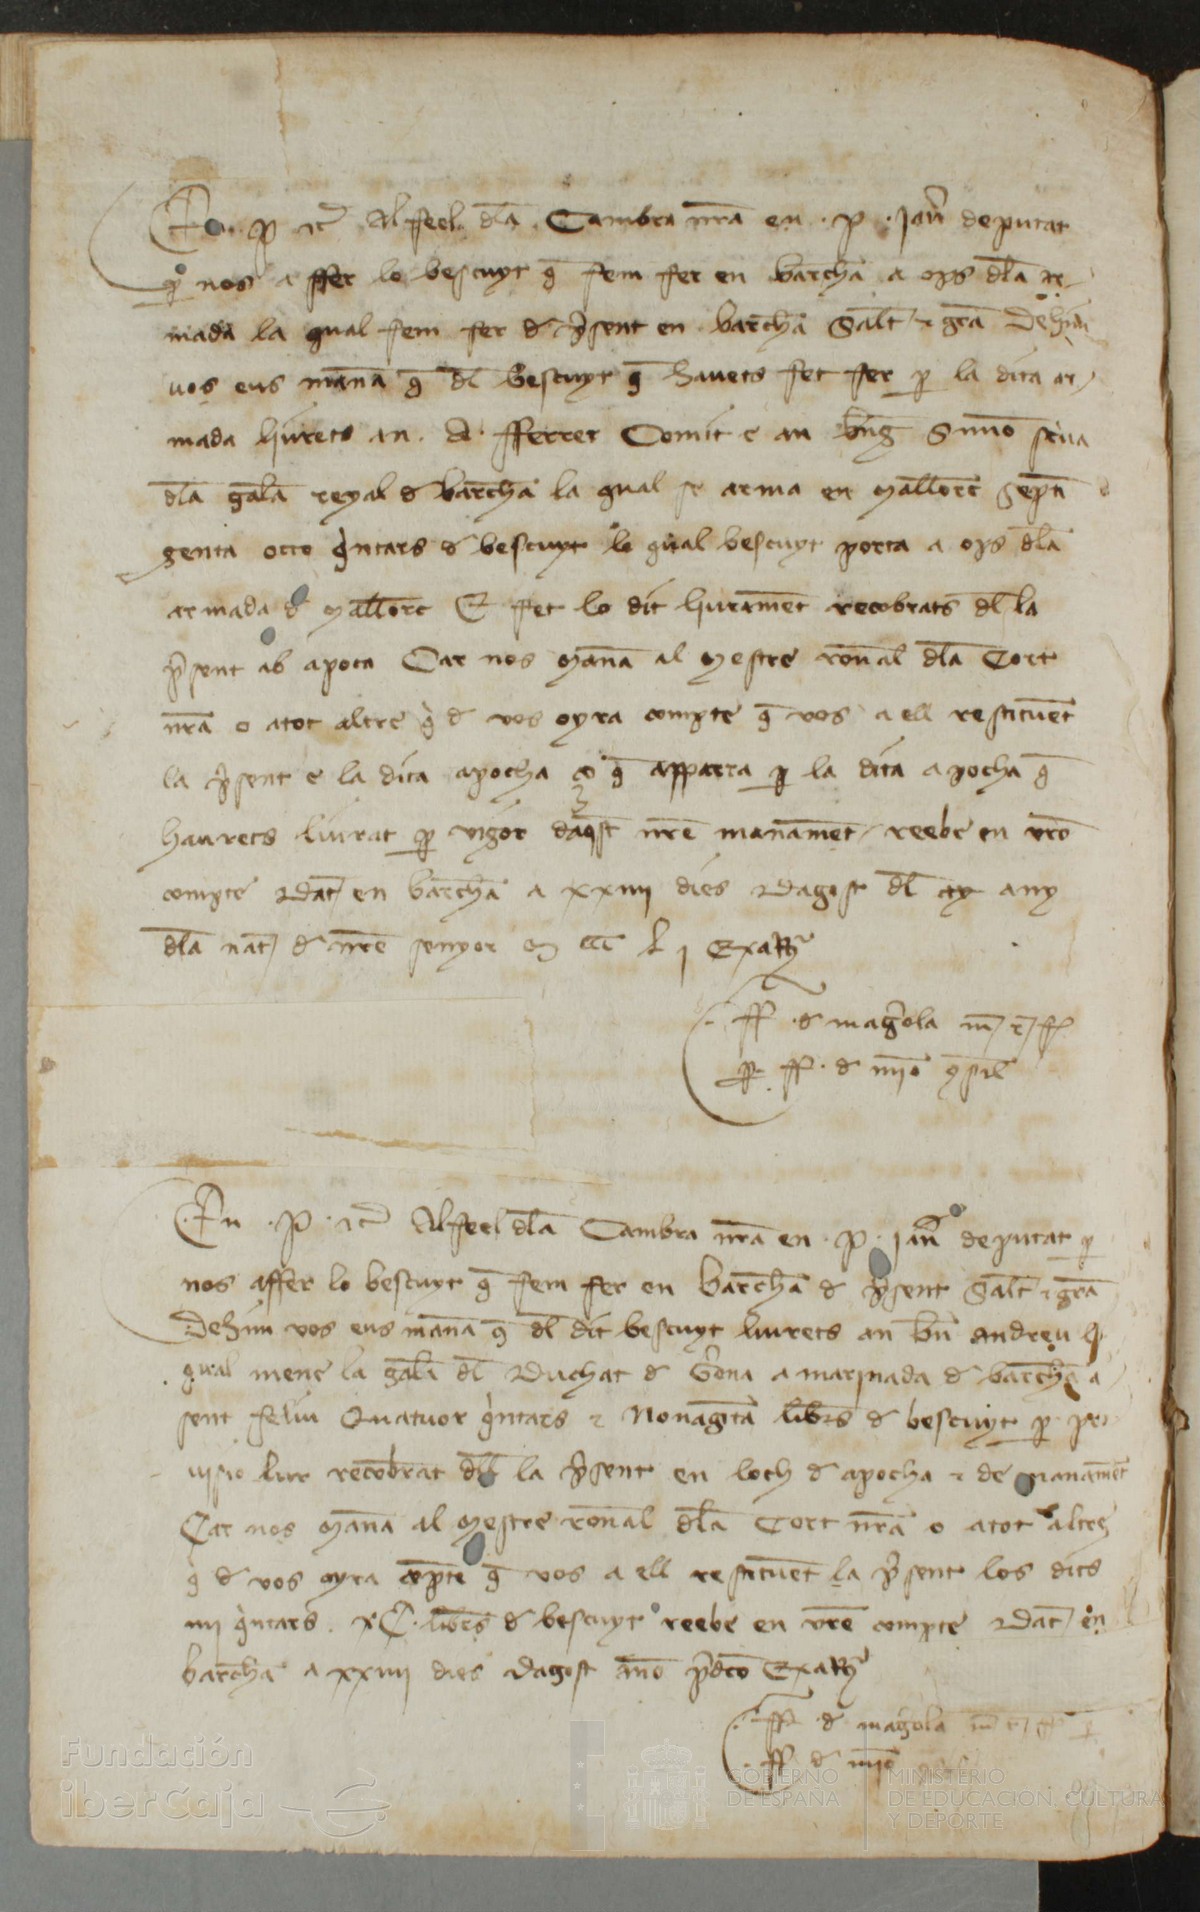 En .P. etc. Al feel dla Cambra nra en .P. Jan deputat
p nos a ffer lo bescuyt q fem fer en barchā a ops dla ar
mada la qual fem fer d psent en barchā Salt e gra Dehim
vos eus manā q dl bescuyt q havets fet fer p la dita ar
mada liurets an .A. fferrer Comit e an bng Simo scua
dla galā reyal d barchā la qual se arma en Mallorc Septi
genta octo qintars d bescuyt lo qual bescuyt porta a ops dla
armada d Mallorc E fet lo dit liuramēt recobrats dl la
psent ab apoca Car nos Manā al Mestre ronal dla Cort
nrā o atot altre q d vos oyra compte q vos a ell restituēt
la psent e la dita apocha ço q apparra p la dita apocha q
haurets liurat p vigor daqst nre manamēt reebe en vro
compte Dat en barchā a xxiiii dies Dagost dl any
dla nat d nre senyor M CCC L I Exa Rr
ff. d magola m r ff
p ff. d miio 9sil
En .P. etc Al feel dla Cambra nra en .P. Jan deputat p
nos affer lo bescuyt q fem fer en barchā d psent Salt e gra
Dehim vos eus manā q dl dit bescuyt liurets an bn andreu lo
qual mene la galā dl Duchat d Gona a marinada d barchā a
sent feliu Quatuor qintars e Nonagita libres d bescuyt p pro
uisio lur recobrat dl la psent en loch d apocha e de manamēt
Car nos Manā al Mestre ronal dla Cort nrā o atot altre
q d vos oyra cōpte q vos a ell restituēt la psent los dits
iiii qintars . xC . libres d bescuyt reebe en vre compte Dat en
barchā a xxiiii dies dagost Ano pdco Exa Rr
ff. d magola m r ff
ff d miio
Fundación
iberCaja
GOBIERNO
DE ESPAÑA
MINISTERIO
DE EDUCACIÓN, CULTURA
Y DEPORTE